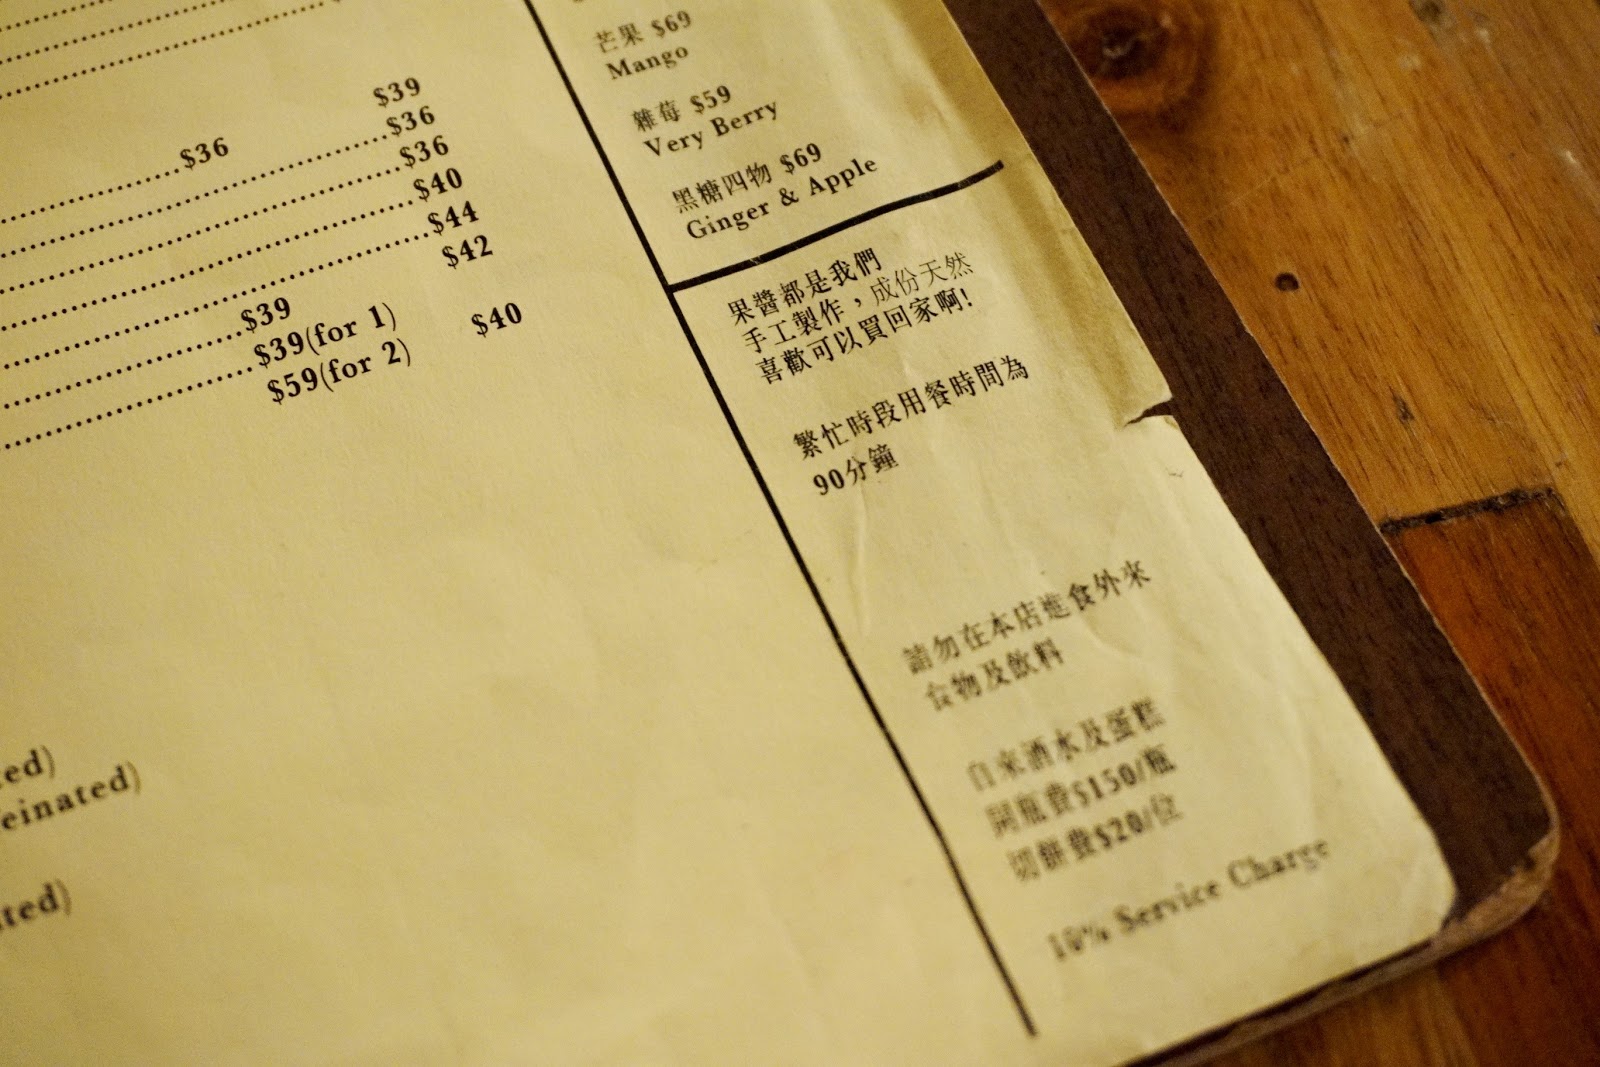 $39
$36
$36
$36
$40
$44
$42
$39
$39(for 1)
$59(for 2)
$40
芒果 $69
Mango
雜莓 $59
Very Berry
黑糖四物 $69
Ginger & Apple
果醬都是我們
手工製作，成份天然
喜歡可以買回家啊!
繁忙時段用餐時間為
90分鐘
請勿在本店進食外來
食物及飲料
自來酒水及蛋糕
開瓶費$150/瓶
切餅費$20/位
10% Service Charge